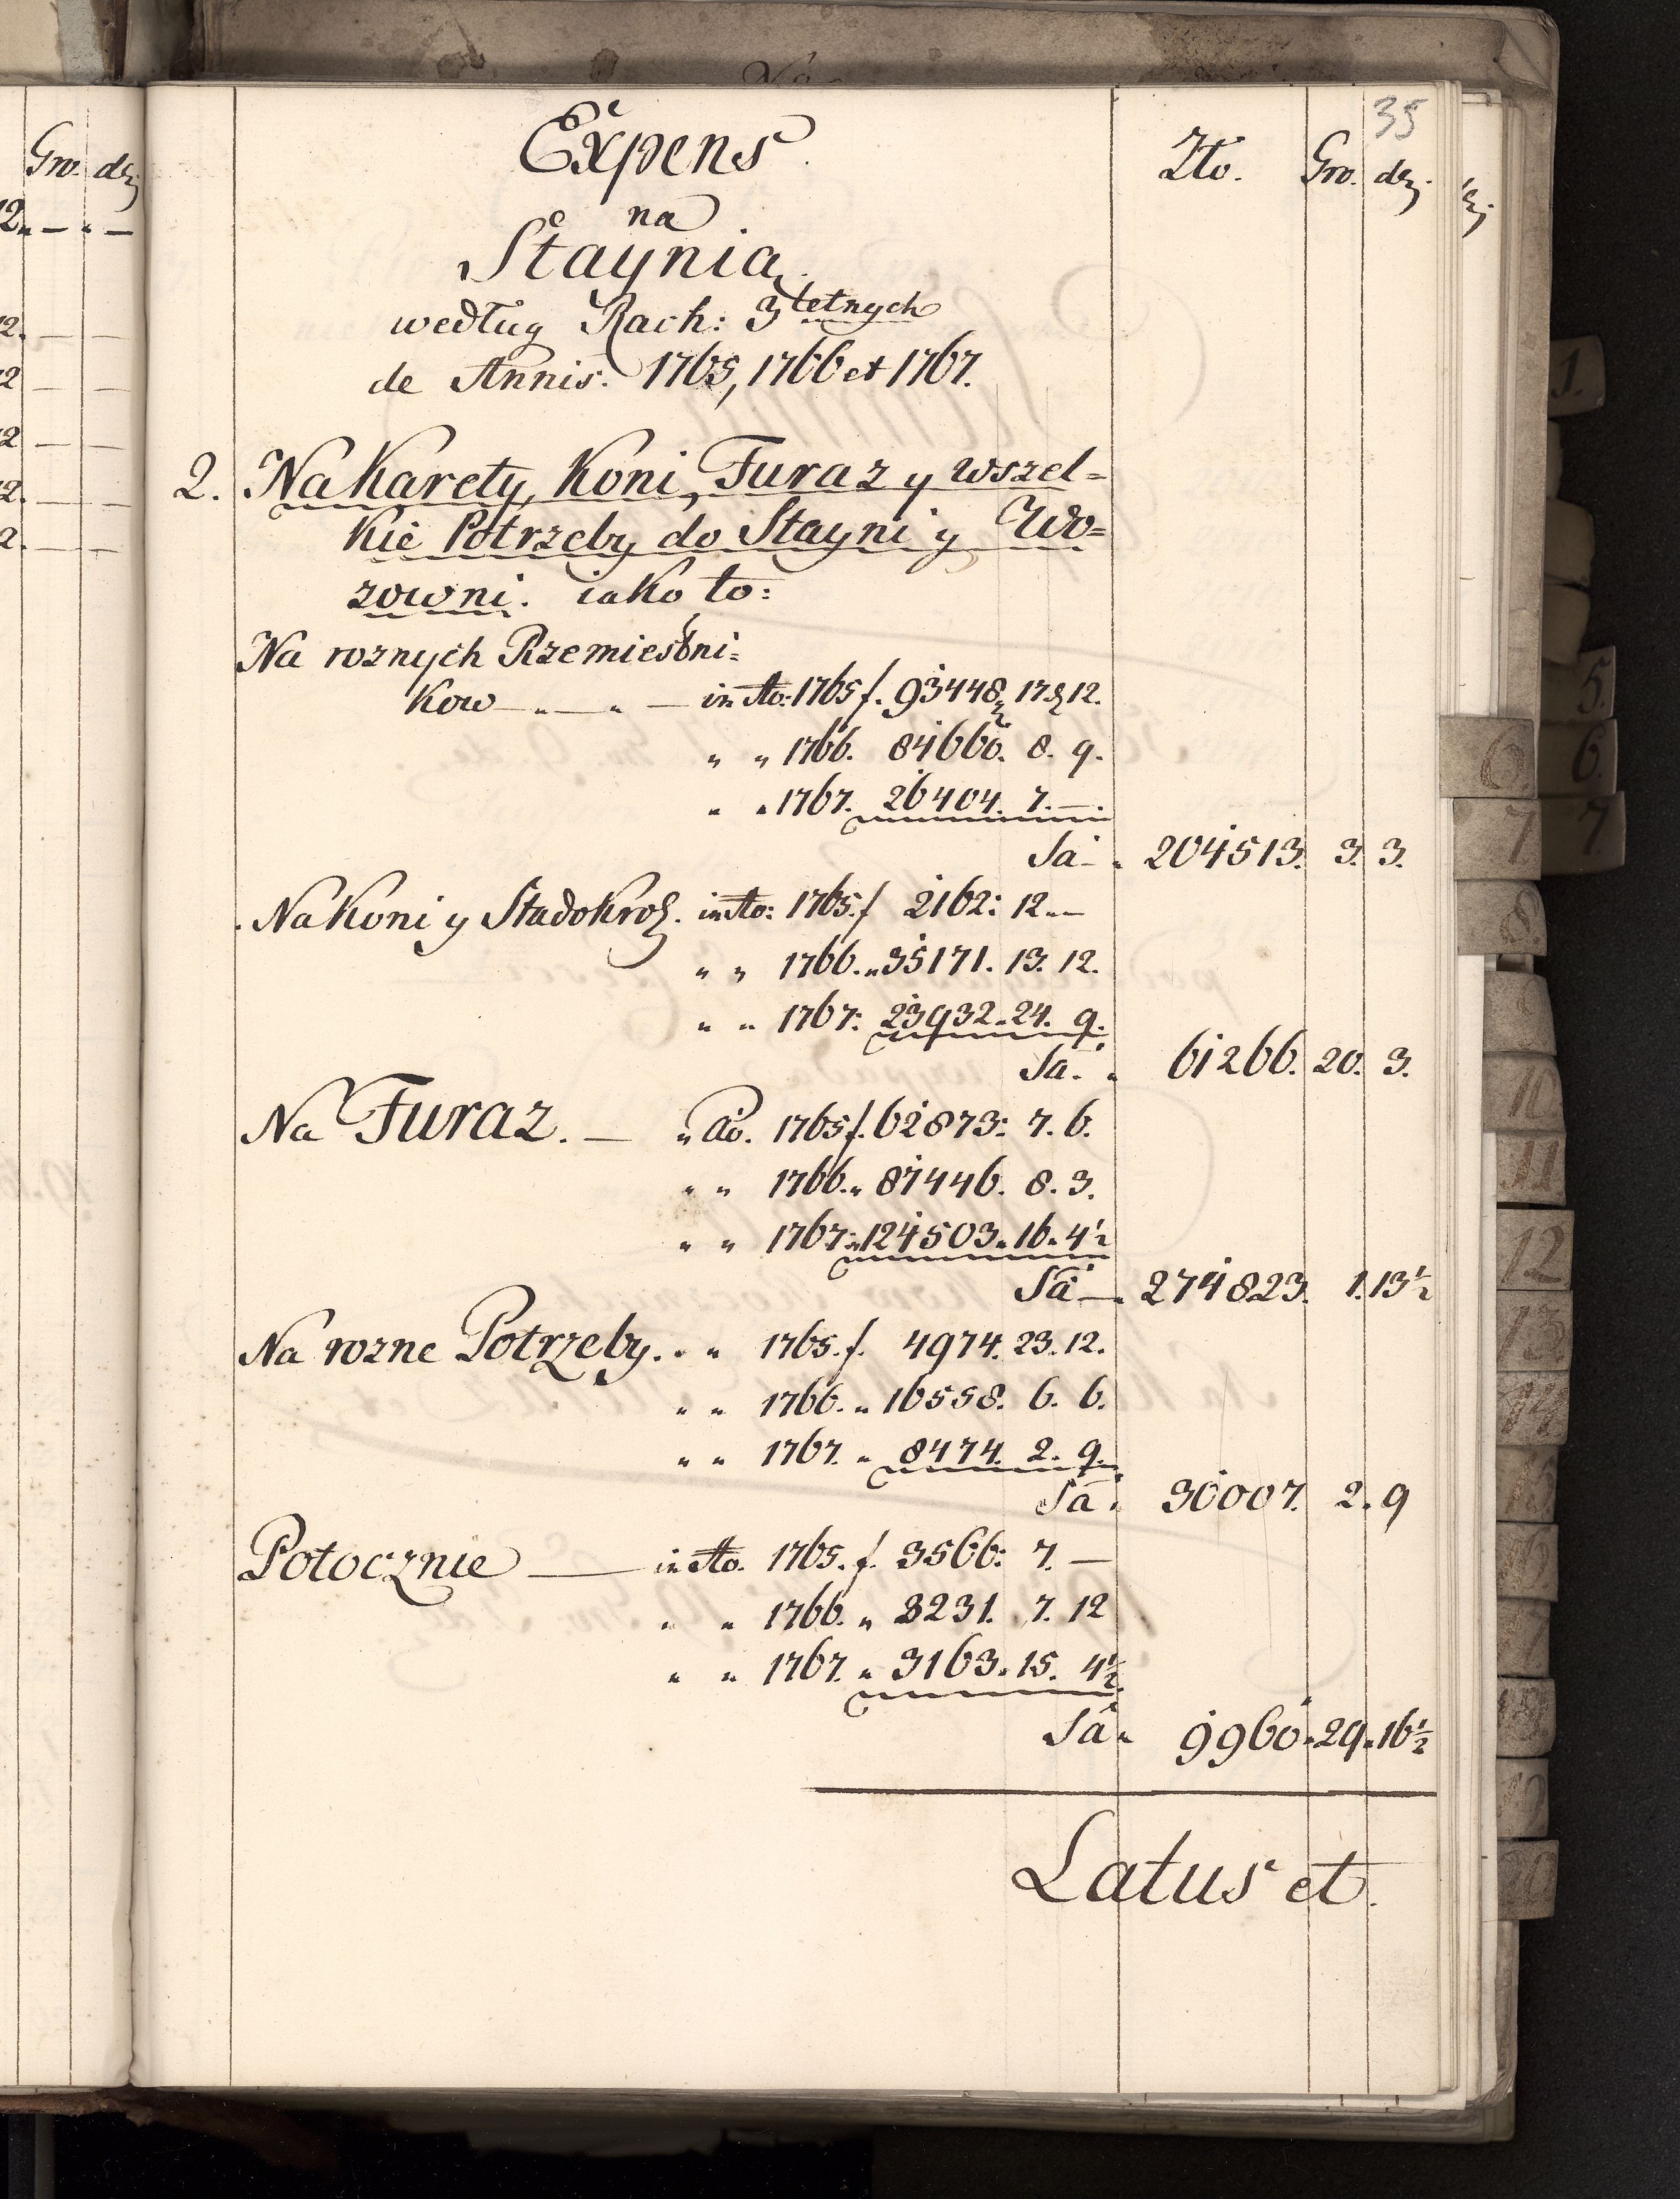 35
Expens
na
Staynią.
według Rach: 3letnych
de Annis. 1765, 1766 et 1767.
Zło. Gro. den.
2. Na Karety, Koni, Furaz y wszel=
kie Potrzeby do Stayni y Wo=
zowni. iako to:
Na roznych Rzemieslni=
kow — „ — „ — in Ao: 1765 f. 93448 „ 17 „ 12.
„ „ 1766. 84660. 8. 9.
„ „ 1767. 26404. 7. —.
Sa - „ 204513. 3. 3.
Na Koni y Stado in Ao: 1765. f 2162: 12 „ —
„ „ 1766. „ 35171. 13. 12.
„ „ 1767: 23932 „ 24. 9.
Sa. „ 61266. 20. 3.
Na Furaz. — „ Ao. 1765 f. 62873: 7. 6.
„ „ 1766. „ 87446. 8. 3.
„ „ 1767: „ 124503 „ 16 „ 4½
Sa — „ 274823. 1. 13½
Na rozne Potrzeby. „ „ 1765. f. 4974. 23. 12.
„ „ 1766. „ 16558. 6. 6.
„ „ 1767. „ 8474. 2. 9.
Sa „ 30007. 2 „ 9
Potocznie — in Ao. 1765. f. 3566: 7. —
„ „ 1766. „ 3231. 7. 12
„ „ 1767. „ 3163 „ 15. 4½.
Sa „ 9960 „ 29 „ 16½
Latus et.
Gro. den
12 „ — „ —
12. — —
12 — —
12 — —
12. — —
2. — —
1.
5.
6.
7
6
7
8
9
10
11
12
13
14
15
16
17
18
19
20